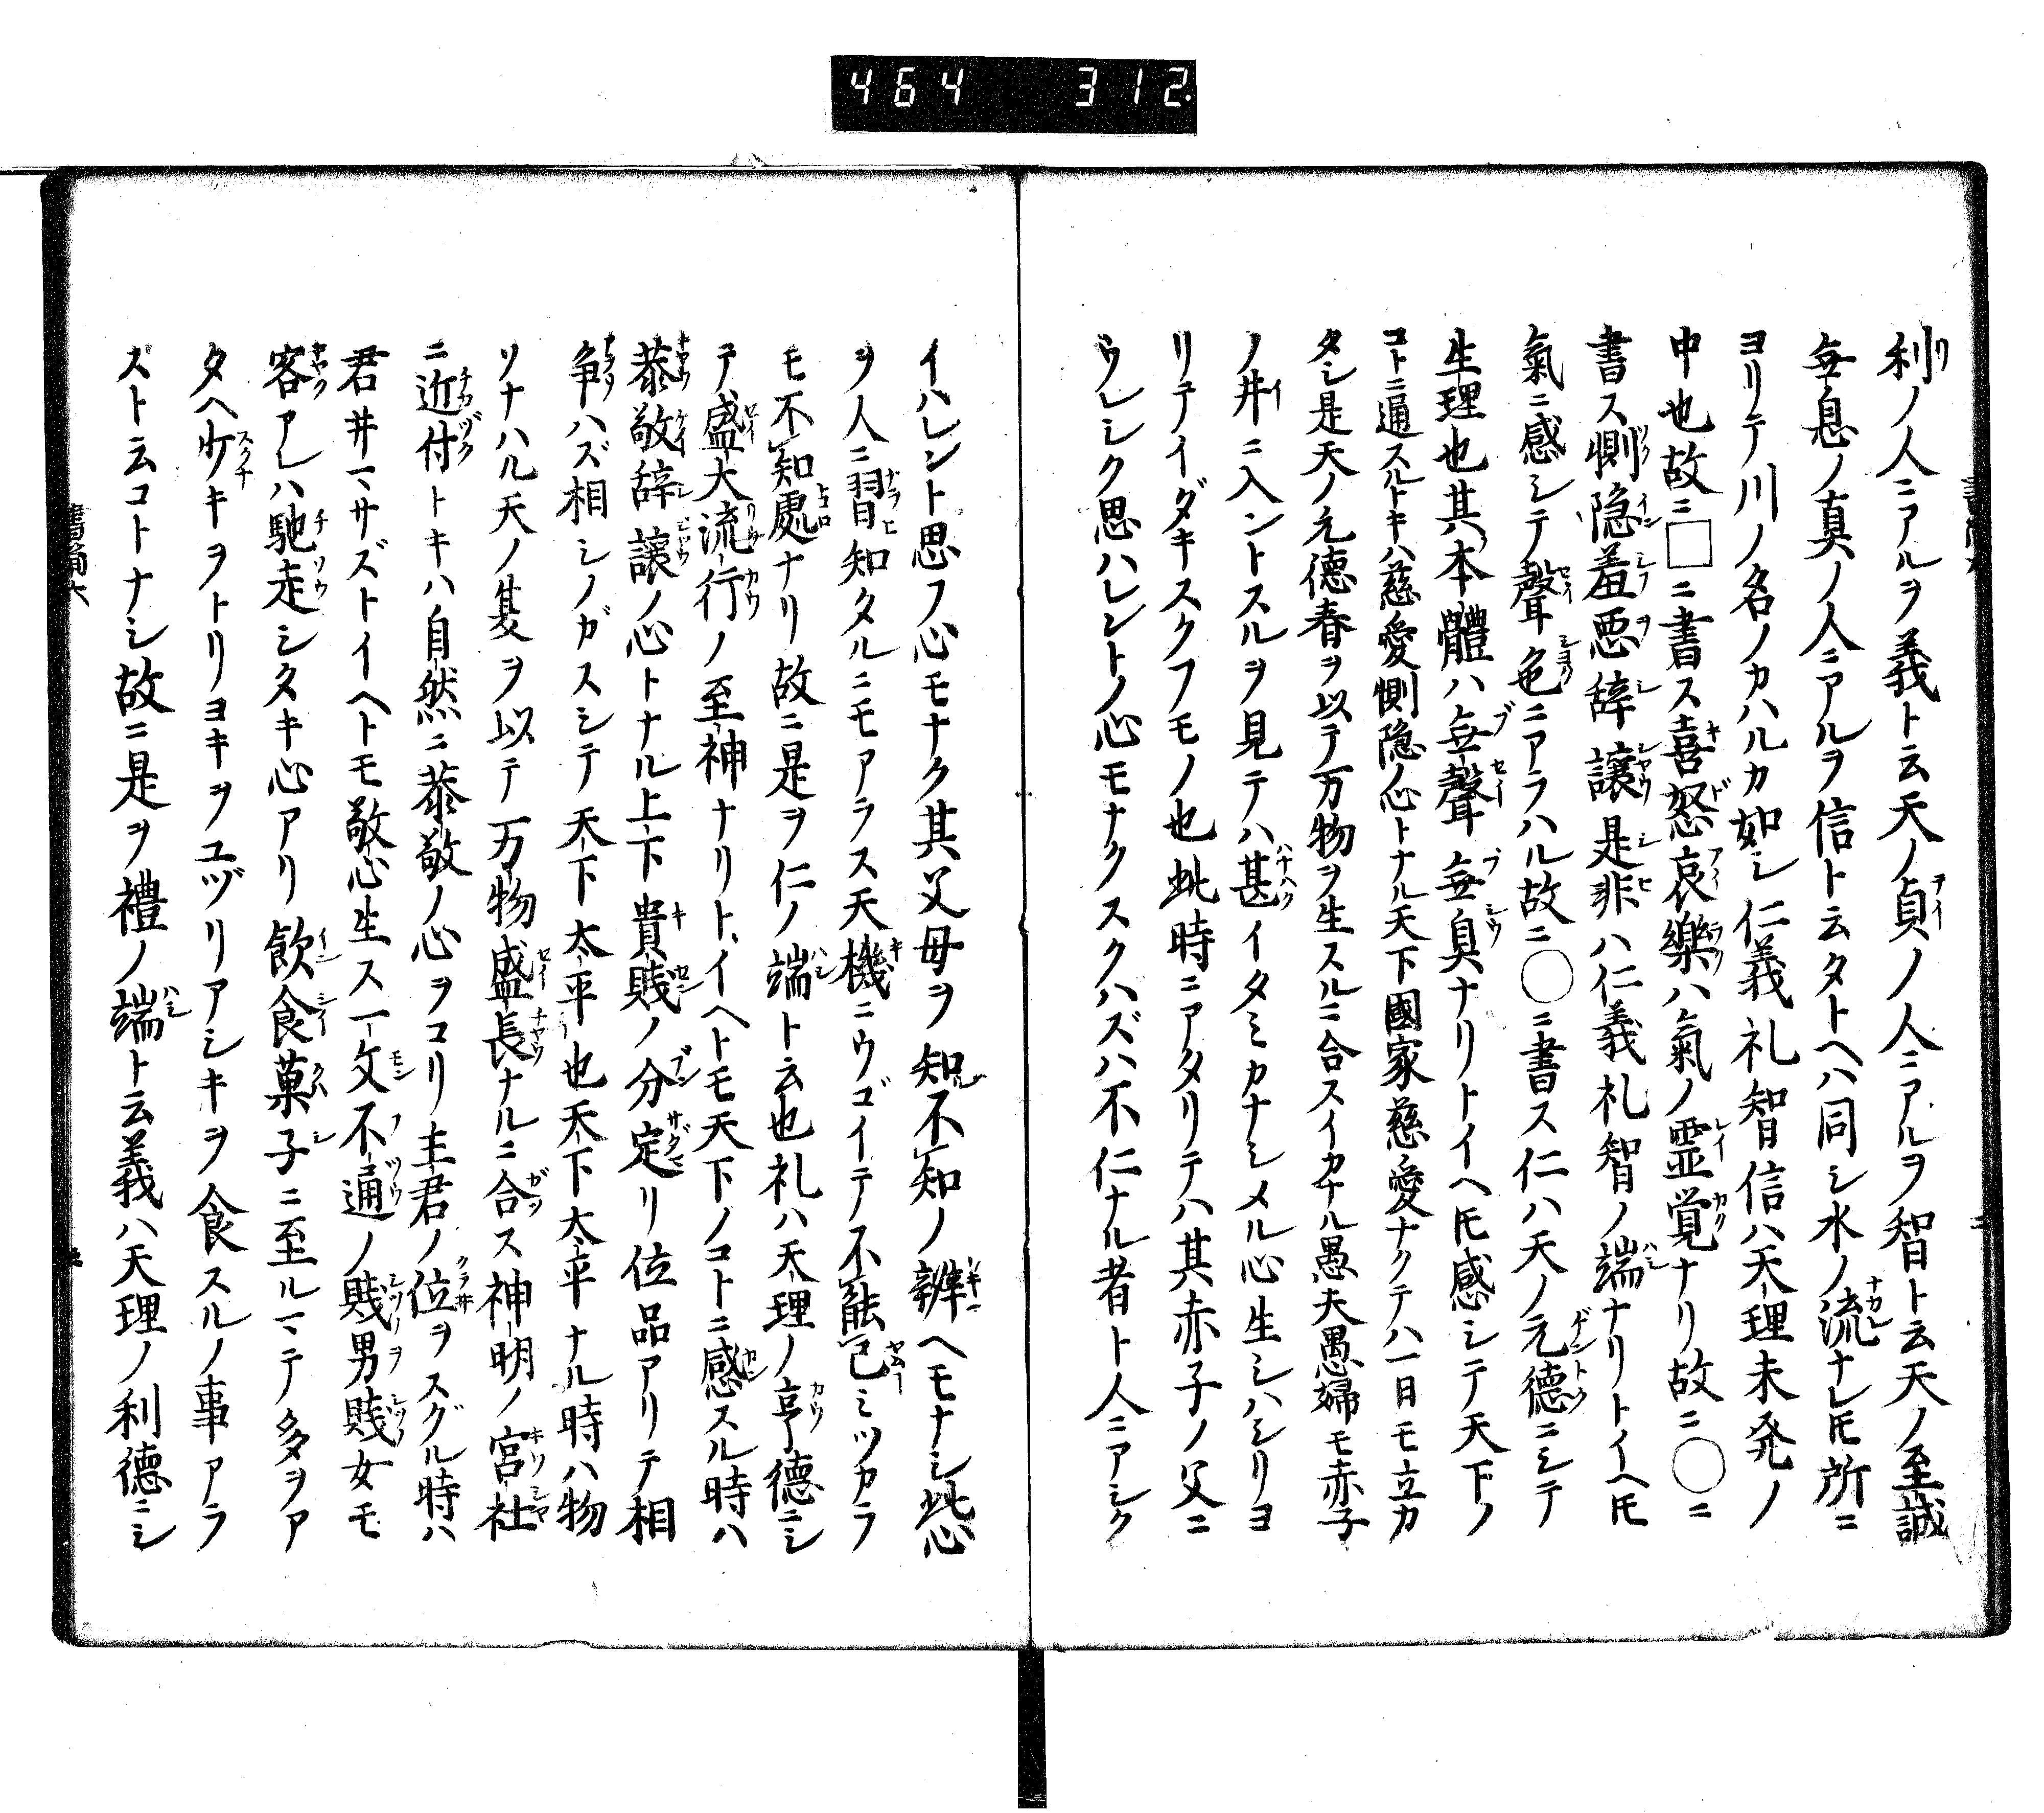 464 312
利ノ人ニアルヲ義ト云天ノ貞ノ人ニアルヲ智ト云天ノ至誠
無息ノ真ノ人ニアルヲ信ト云タトヘハ同シ水ノ流ナレ𪜈所ニ
ヨリテ川ノ名ノカハルカ如シ仁義礼智信ハ天理未発ノ
中也故ニ□ニ書ス喜怒哀樂ハ氣ノ霊覚ナリ故ニ○ニ
書ス惻隠羞悪辞譲是非ハ仁義礼智ノ端ナリトイヘ𪜈
氣ニ感シテ聲色ニアラハル故ニ○ニ書ス仁ハ天ノ元德ニシテ
生理也其本體ハ無聲無臭ナリトイヘ𪜈感シテ天下ノ
コトニ通スルトキハ慈愛惻隠ノ心トナル天下國家慈愛ナクテハ一日モ立カ
タシ是天ノ元德春ヲ以テ万物ヲ生スルニ合スイカナル愚夫愚婦モ赤子
ノ井ニ入ントスルヲ見テハ甚イタミカナシメル心生シハシリヨ
リテイダキスクフモノ也此時ニアタリテハ其赤子ノ父ニ
ウレシク思ハレントノ心モナクスクハズハ不仁ナル者ト人ニアシク
イハレント思フ心モナク其父母ヲ知不知ノ辨ヘモナシ此心
ヲ人ニ習知タルニモアラス天機ニウゴイテ不能已ミツカラ
モ不知處ナリ故ニ是ヲ仁ノ端ト云也礼ハ天理ノ亨德ニシ
テ盛大流行ノ至神ナリトイヘトモ天下ノコトニ感スル時ハ
恭敬辞譲ノ心トナル上下貴賤ノ分定リ位品アリテ相
争ハズ相シノガスシテ天下太平也天下太平ナル時ハ物
ソナハル天ノ夏ヲ以テ万物盛長ナルニ合ス神明ノ宮社
ニ近付トキハ自然ニ恭敬ノ心ヲコリ主君ノ位ヲスグル時ハ
君井マサズトイヘトモ敬心生ス一文不通ノ賤男賤女モ
客アレハ馳走シタキ心アリ飲食菓子ニ至ルマテ多ヲア
タヘ少キヲトリヨキヲユヅリアシキヲ食スルノ事アラ
ストユ云コトナシ故ニ是ヲ禮ノ端ト云義ハ天理ノ利德ニシ